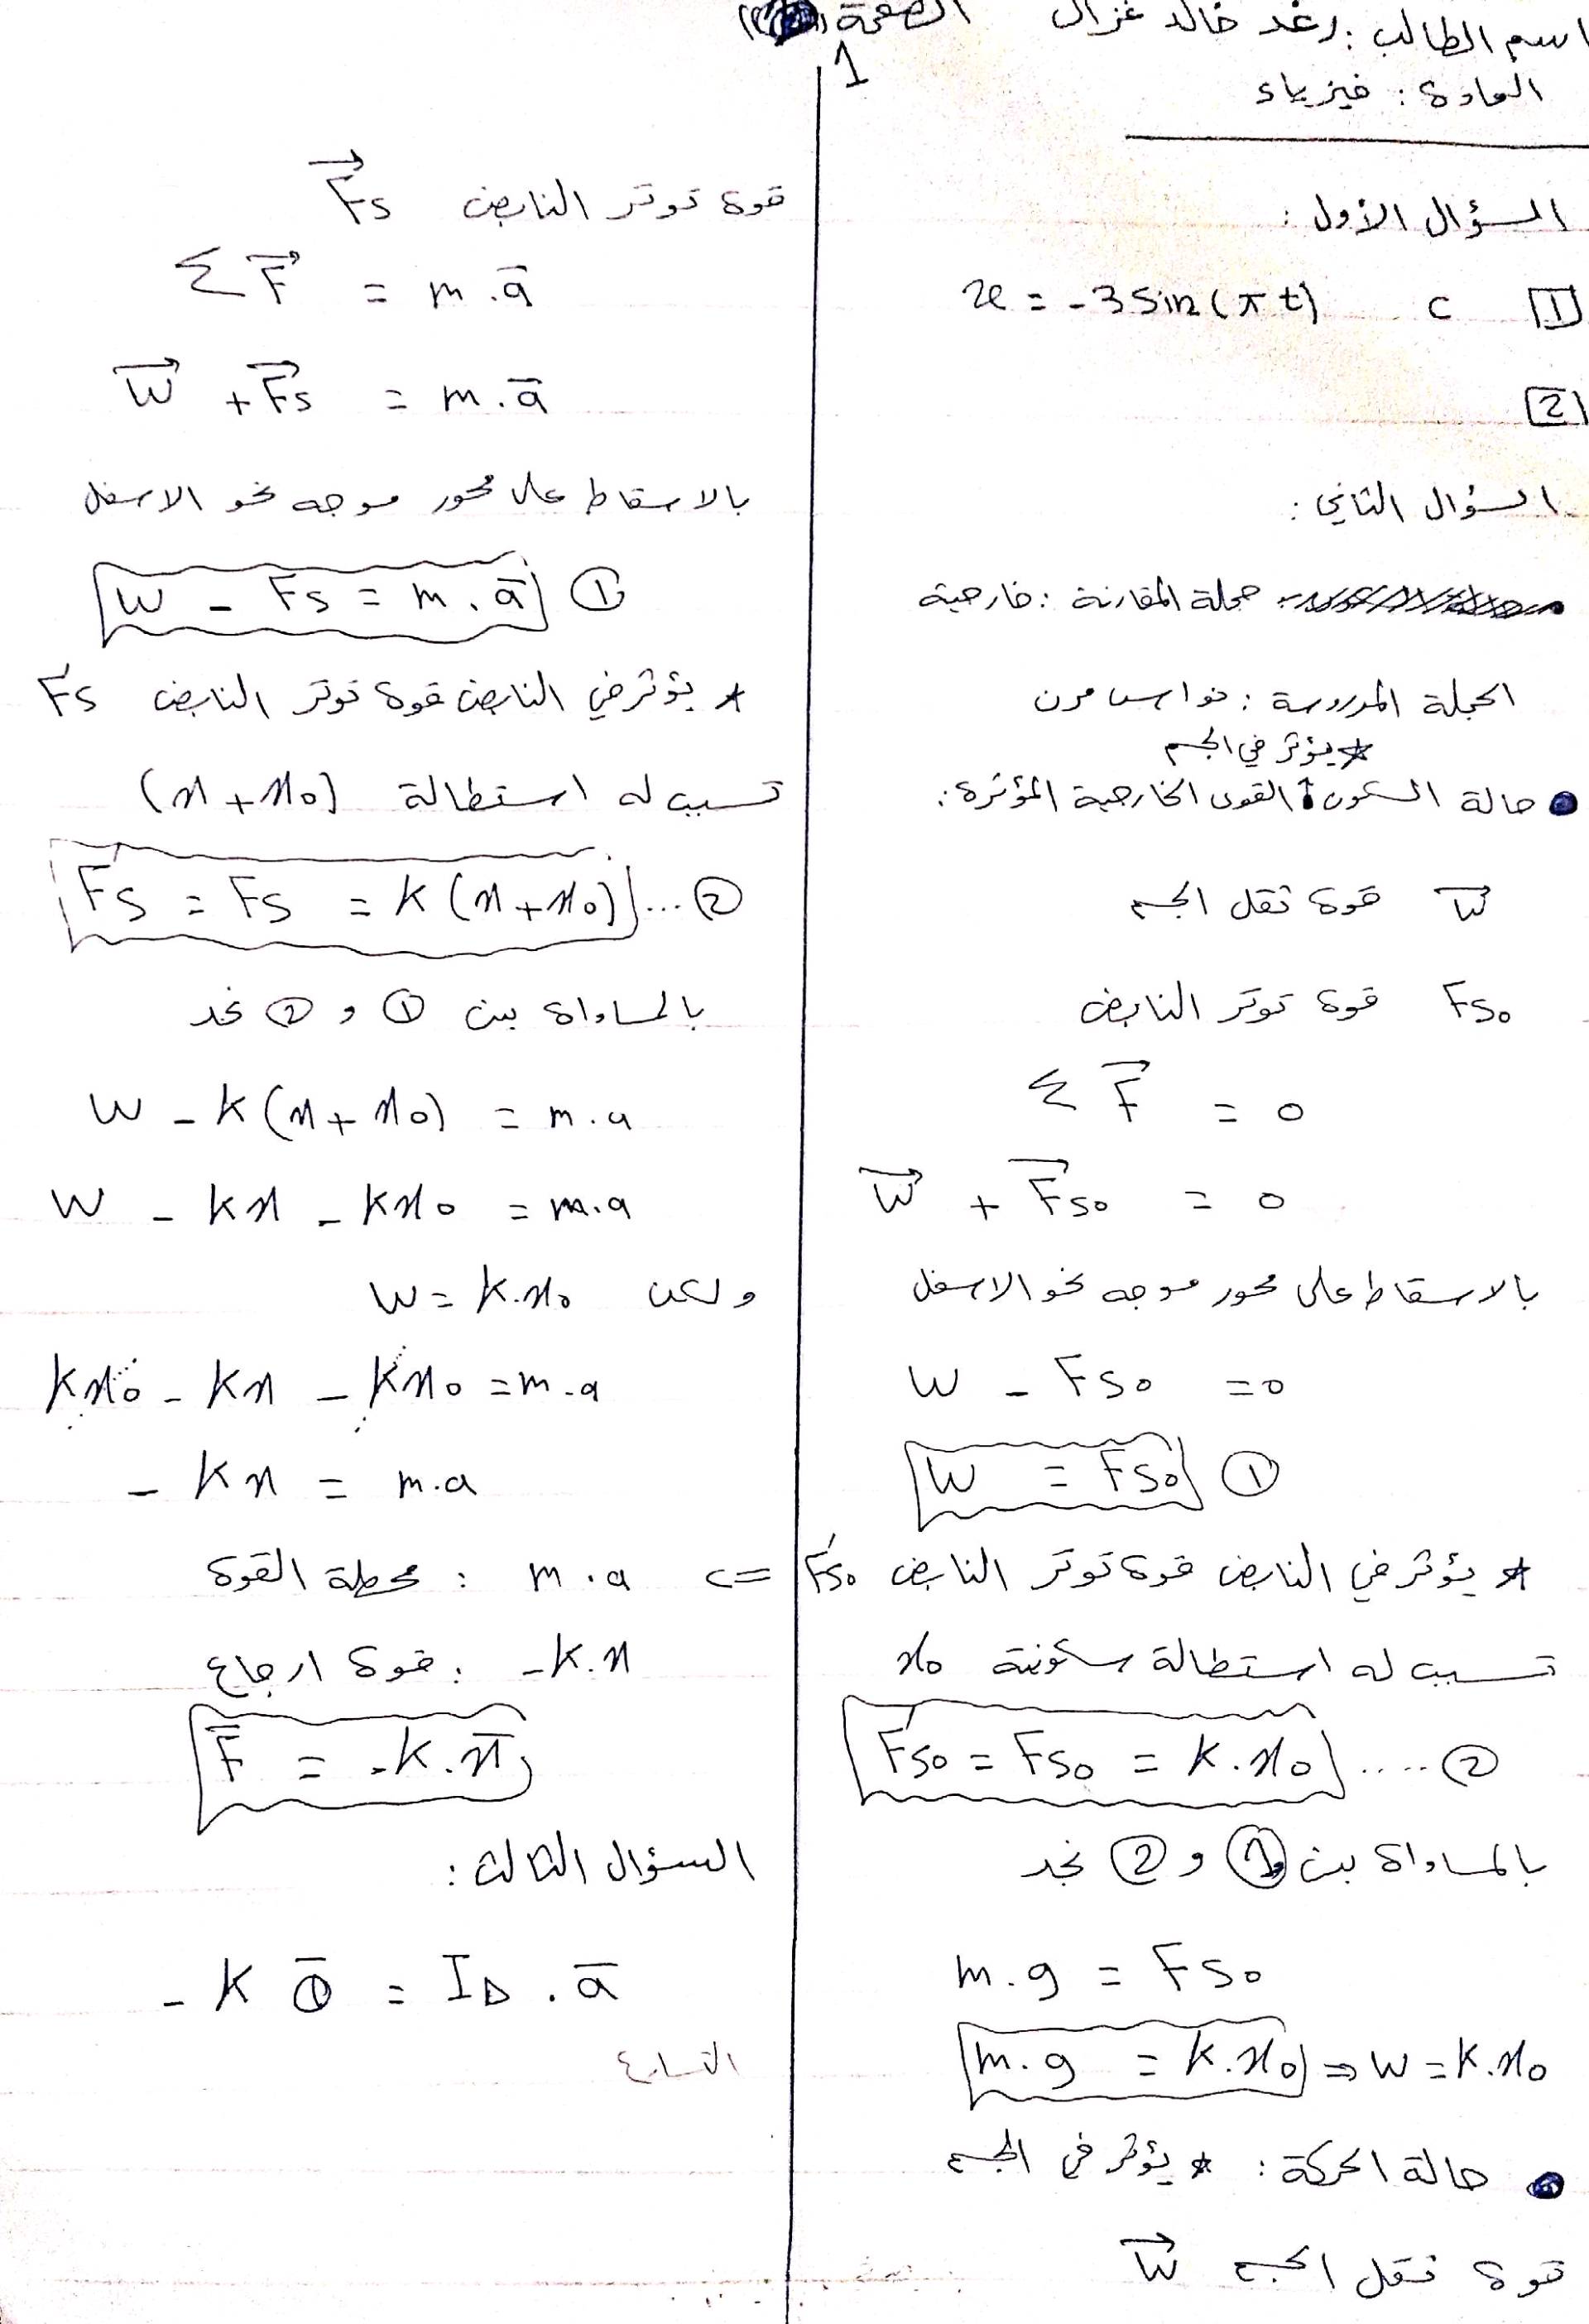 اسم الطالب : رغد خالد غزال الصفحة
1
المادة : فيزياء
السؤال الأول :
1 c x = -3 sin(π t)
2
السؤال الثاني :
جملة المقارنة : خارجية
الجملة المدروسة : نواس مرن
* يؤثر في الجسم
حالة السكون القوى الخارجية المؤثرة :
W⃗ قوة ثقل الجسم
Fs₀ قوة توتر النابض
Σ F⃗ = 0
W⃗ + F⃗s₀ = 0
بالاسقاط على محور موجه نحو الاسفل
W - Fs₀ = 0
W = Fs₀ ①
* يؤثر في النابض قوة توتر النابض F's₀
تسبب له استطالة سكونية x₀
F's₀ = Fs₀ = k . x₀ ..... ②
بالمساواة بين ① و ② نجد
m . g = Fs₀
m . g = k . x₀ ⇒ W = k . x₀
حالة الحركة : * يؤثر في الجسم
قوة ثقل الجسم W⃗
قوة توتر النابض F⃗s
Σ F⃗ = m . a̅
W⃗ + F⃗s = m . a̅
بالاسقاط على محور موجه نحو الاسفل
W - Fs = m . a̅ ①
* يؤثر في النابض قوة توتر النابض F's
تسبب له استطالة (x + x₀)
F's = Fs = k (x + x₀) ... ②
بالمساواة بين ① و ② نجد
W - k (x + x₀) = m . a
W - kx - kx₀ = m . a
ولكن W = k . x₀
kx₀ - kx - kx₀ = m . a
- kx = m . a
=> m . a : محصلة القوة
-k . x : قوة ارجاع
F̅ = -k . x̅
السؤال الثالث :
- k θ̅ = I∆ . a̅
التسارع